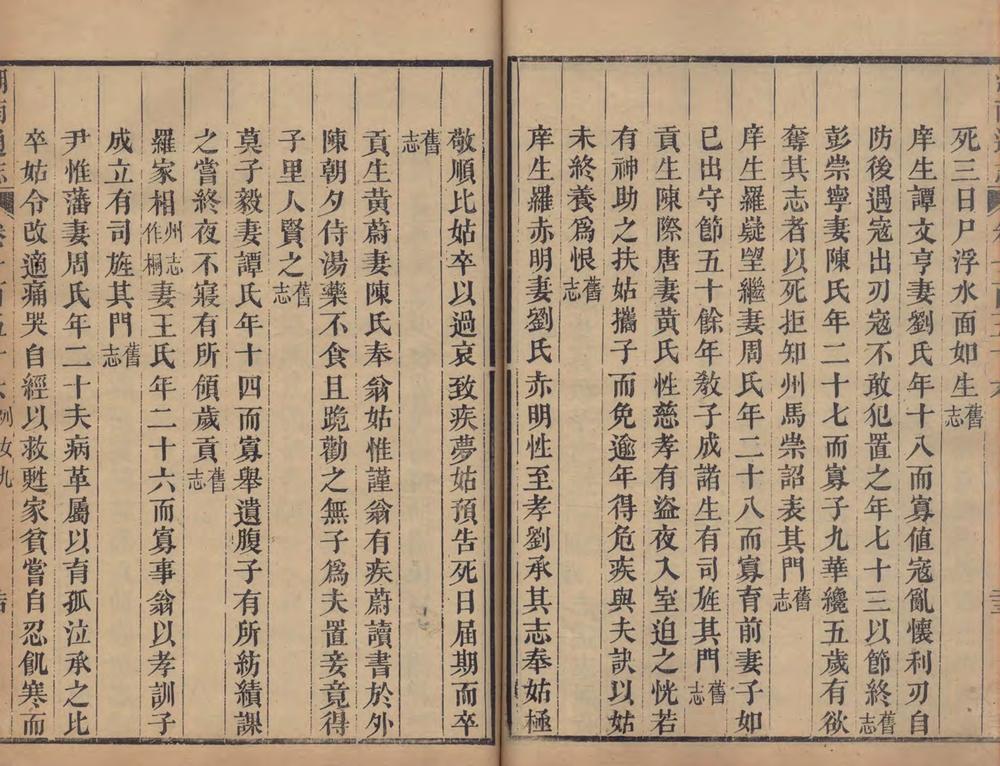 死三日尸浮水面如生舊志
庠生譚文亨妻劉氏年十八而寡値寇亂懷利刃自
防後遇寇出刃寇不敢犯置之年七十三以節終舊志
彭崇寧妻陳氏年二十七而寡子九華纔五歲有欲
奪其志者以死拒知州馬崇詔表其門舊志
庠生羅嶷望繼妻周氏年二十八而寡育前妻子如
已出守節五十餘年敎子成諸生有司旌其門舊志
貢生陳際唐妻黃氏性慈孝有盜夜入室迫之恍若
有神助之扶姑攜子而免逾年得危疾與夫訣以姑
未終養爲恨舊志
庠生羅赤明妻劉氏赤明性至孝劉承其志奉姑極
敬順比姑卒以過哀致疾夢姑預告死日届期而卒
舊志
貢生黃蔚妻陳氏奉翁姑惟謹翁有疾蔚讀書於外
陳朝夕侍湯藥不食且跪勸之無子爲夫置妾竟得
子里人賢之舊志
莫子毅妻譚氏年十四而寡舉遺腹子有所紡績課
之嘗終夜不寢有所傾歲貢舊志
羅家相州志作桐妻王氏年二十六而寡事翁以孝訓子
成立有司旌其門舊志
尹惟藩妻周氏年二十夫病革屬以育孤泣承之比
卒姑令改適痛哭自經以救甦家貧嘗自忍飢寒而
湖南通志
列女九